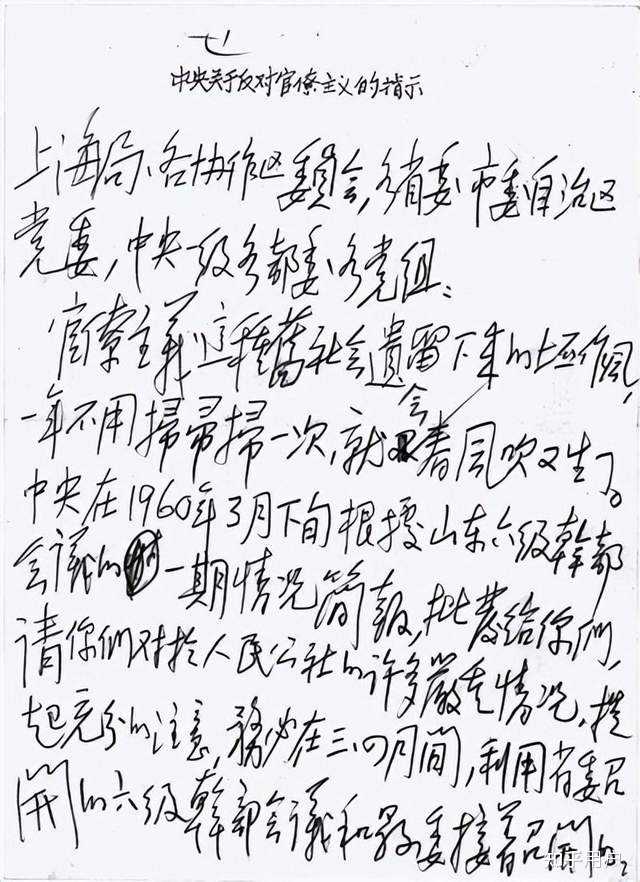 七
中央关于反对官僚主义的指示
上海局、各协作区委员会,各省委市委自治区
党委,中央一级各部委各党组:
官寮主義這種舊社会遺留下来的坏作風,
一年不用掃帚掃一次,就会春風吹又生了。
中央在1960年3月下旬根據山东六级幹部
会議的一期情况简報,批發给你們,
请你們对於人民公社的许多嚴重情况,提
起充分的注意,務必在三、四月間,利用省委召
開的六级幹部会議和县委接着召開的
知乎用户